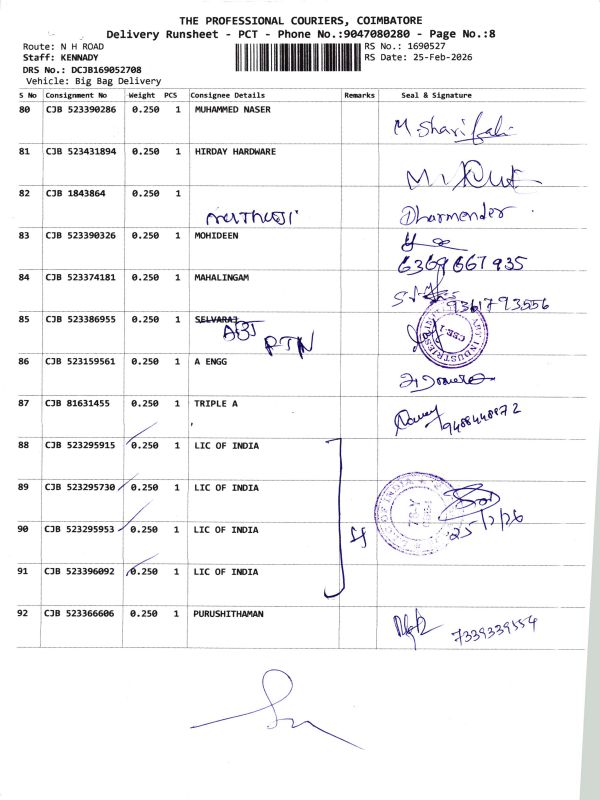 THE PROFESSIONAL COURIERS, COIMBATORE
Delivery Runsheet - PCT - Phone No.:9047080280 - Page No.:8
Route: N H ROAD RS No.: 1690527
Staff: KENNADY RS Date: 25-Feb-2026
DRS No.: DCJB169052708
Vehicle: Big Bag Delivery
S No Consignment No Weight PCS Consignee Details Remarks Seal & Signature
80 CJB 523390286 0.250 1 MUHAMMED NASER
81 CJB 523431894 0.250 1 HIRDAY HARDWARE
82 CJB 1843864 0.250 1 Dharmender
83 CJB 523390326 0.250 1 MOHIDEEN
6369667935
84 CJB 523374181 0.250 1 MAHALINGAM
9361793556
85 CJB 523386955 0.250 1 SELVARAJ
86 CJB 523159561 0.250 1 A ENGG
87 CJB 81631455 0.250 1 TRIPLE A
88 CJB 523295915 0.250 1 LIC OF INDIA
89 CJB 523295730 0.250 1 LIC OF INDIA
90 CJB 523295953 0.250 1 LIC OF INDIA
25/2/26
91 CJB 523396092 0.250 1 LIC OF INDIA
92 CJB 523366606 0.250 1 PURUSHITHAMAN
7339339554